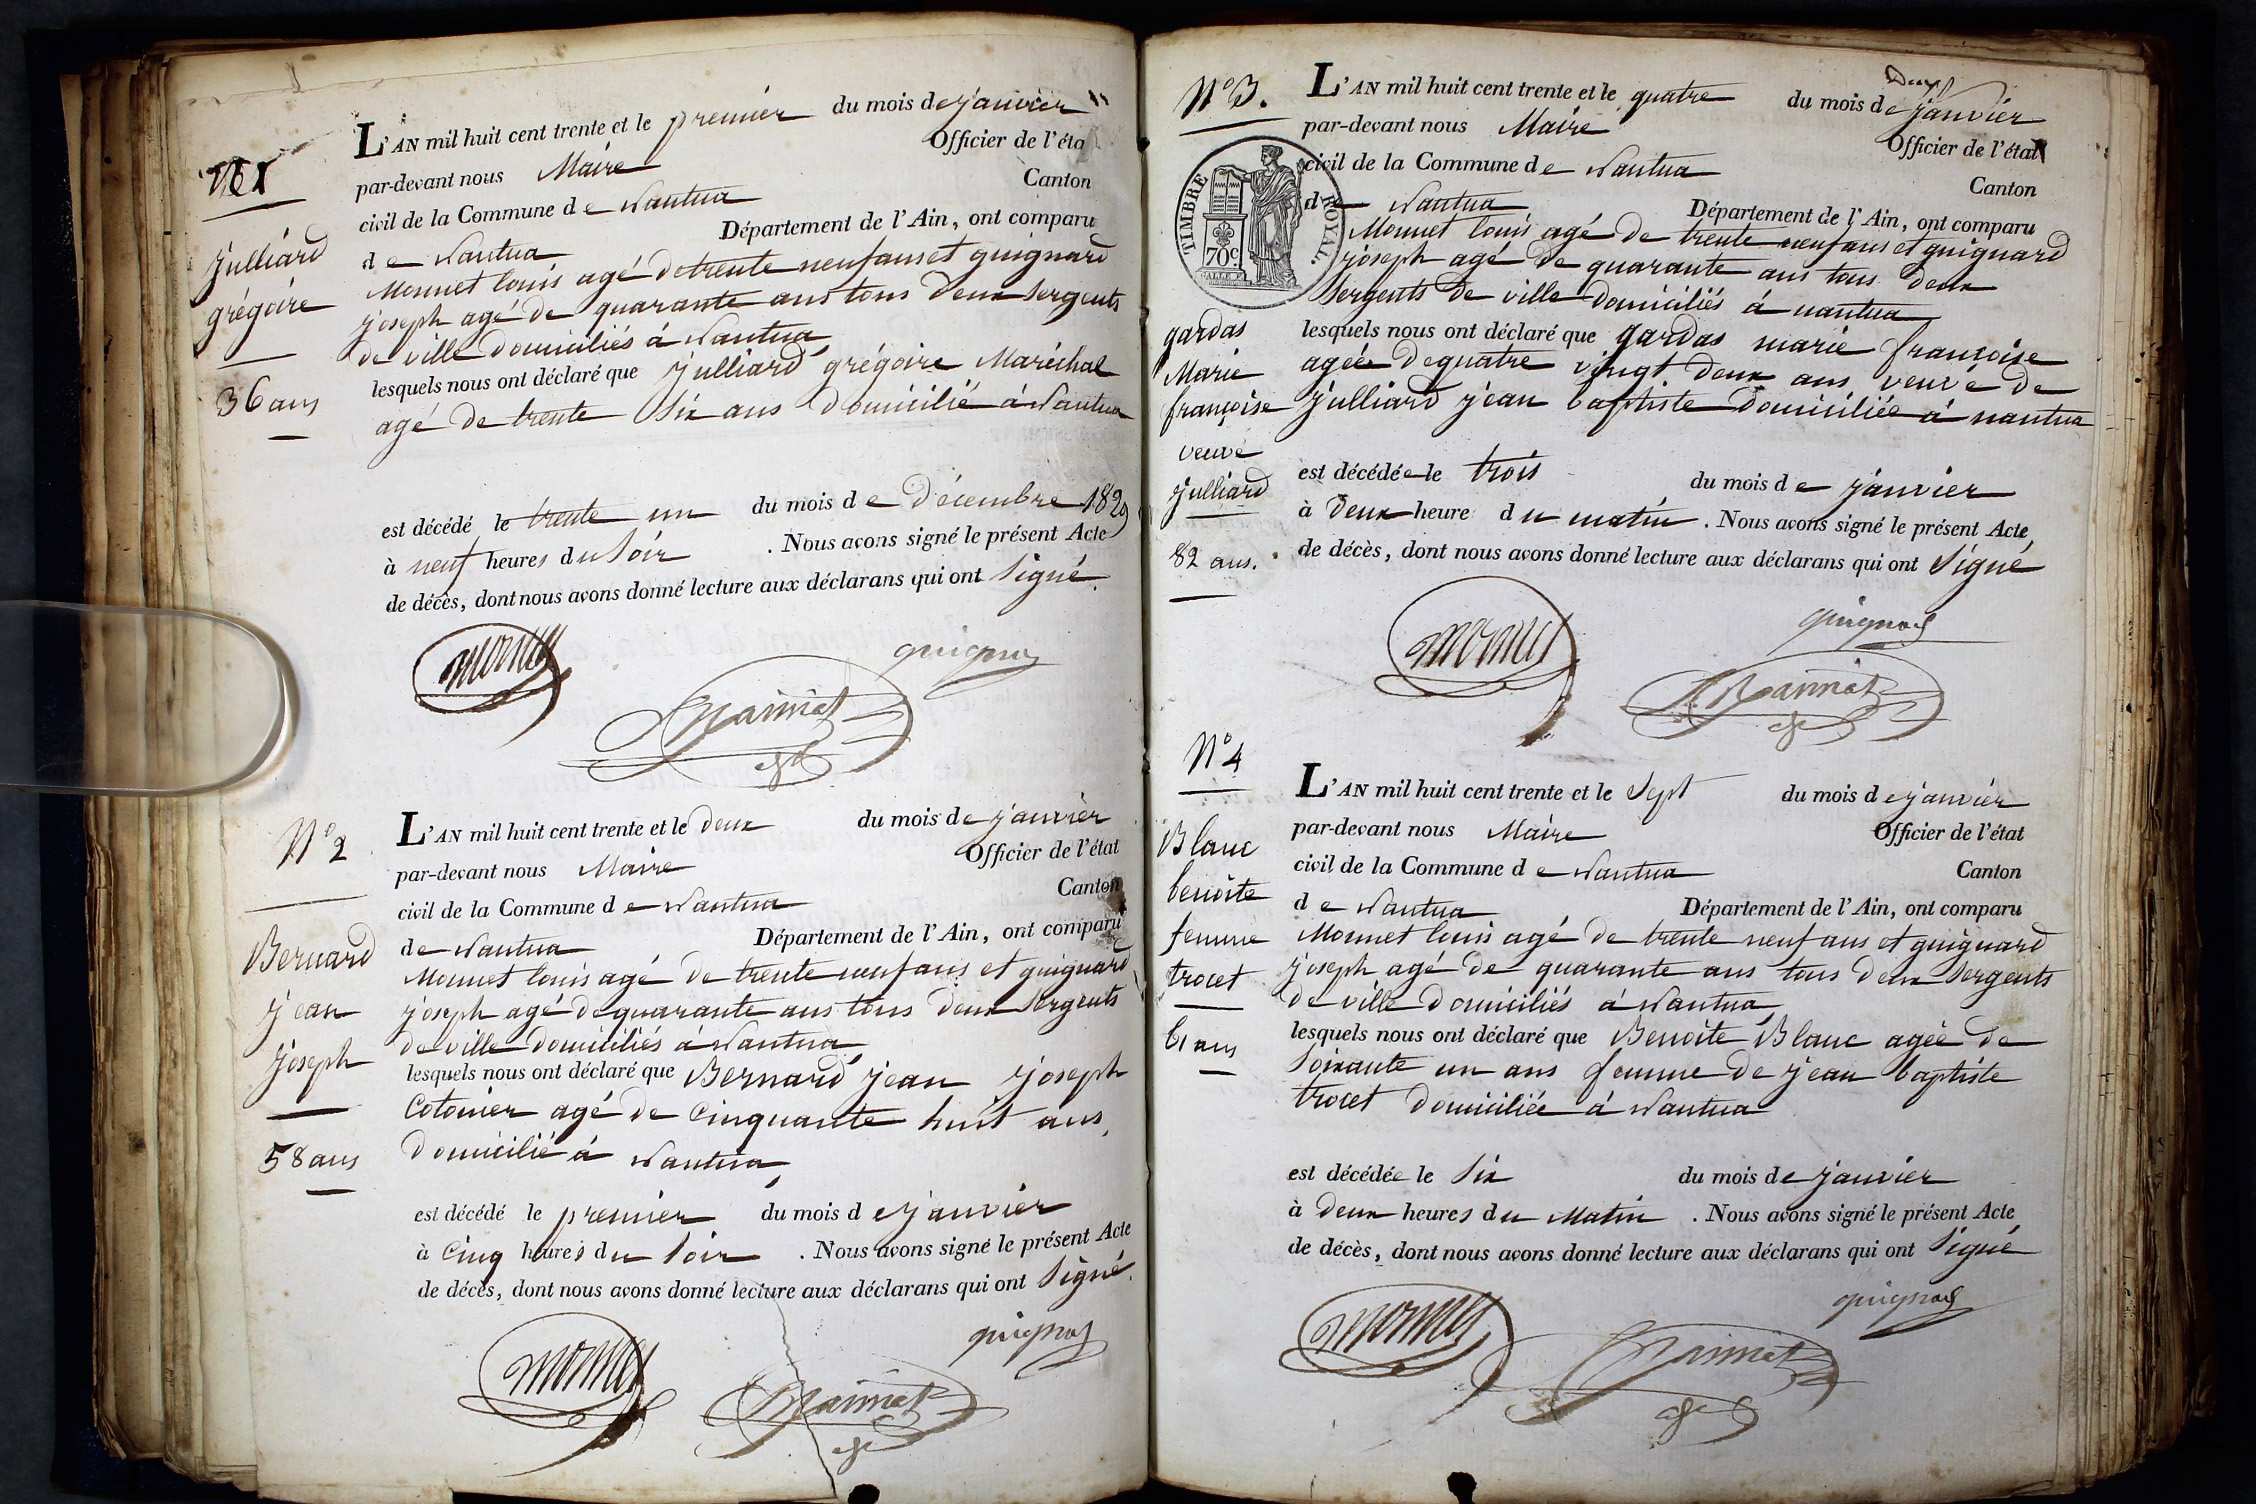 N°1
Julliard
grégoire
36 ans
L'AN mil huit cent trente et le premier du mois de janvier
par-devant nous Maire Officier de l'éta
civil de la Commune de Nantua Canton
de Nantua Département de l'Ain, ont comparu
Monnet louis agé de trente neuf ans et guignard
joseph agé de quarante ans tous deux Sergents
de ville domiciliés à Nantua
lesquels nous ont déclaré que Julliard grégoire Maréchal
agé de trente Six ans domicilié à Nantua
est décédé le trente un du mois de décembre 1829
à neuf heures du Soir . Nous avons signé le présent Acte
de décès, dont nous avons donné lecture aux déclarans qui ont Signé.
monnet
guignard
N°2
Bernard
jean
joseph
58 ans
L'AN mil huit cent trente et le deux du mois de janvier
par-devant nous Maire Officier de l'état
civil de la Commune de Nantua Canton
de Nantua Département de l'Ain, ont comparu
Monnet louis agé de trente neuf ans et guignard
joseph agé de quarante ans tous deux Sergents
de ville domiciliés à Nantua
lesquels nous ont déclaré que Bernard jean joseph
Cotonier agé de Cinquante huit ans
domicilié à Nantua
est décédé le premier du mois de janvier
à Cinq heures du Soir . Nous avons signé le présent Acte
de décès, dont nous avons donné lecture aux déclarans qui ont Signé.
monnet
guignard
N°3.
TIMBRE ROYAL.
70c
gardas
Marie
françoise
veuve
Julliard
82 ans.
L'AN mil huit cent trente et le quatre du mois de janvier
par-devant nous Maire Officier de l'état
civil de la Commune de Nantua Canton
de Nantua Département de l'Ain, ont comparu
Monnet louis agé de trente neuf ans et guignard
joseph agé de quarante ans tous deux
Sergents de ville domiciliés à nantua
lesquels nous ont déclaré que gardas marie françoise
agée de quatre vingt deux ans veuve de
Julliard jean baptiste domiciliée à nantua
est décédée le trois du mois de janvier
à deux heure du matin . Nous avons signé le présent Acte
de décès, dont nous avons donné lecture aux déclarans qui ont Signé
monnet
guignard
N°4
Blanc
benoite
femme
trocet
61 ans
L'AN mil huit cent trente et le Sept du mois de janvier
par-devant nous Maire Officier de l'état
civil de la Commune de Nantua Canton
de Nantua Département de l'Ain, ont comparu
Monnet louis agé de trente neuf ans et guignard
joseph agé de quarante ans tous deux Sergents
de ville domiciliés à Nantua
lesquels nous ont déclaré que Benoite Blanc agée de
Soixante un ans femme de jean baptiste
trocet domiciliée à Nantua
est décédée le Six du mois de janvier
à deux heures du Matin . Nous avons signé le présent Acte
de décès, dont nous avons donné lecture aux déclarans qui ont Signé
monnet
guignard